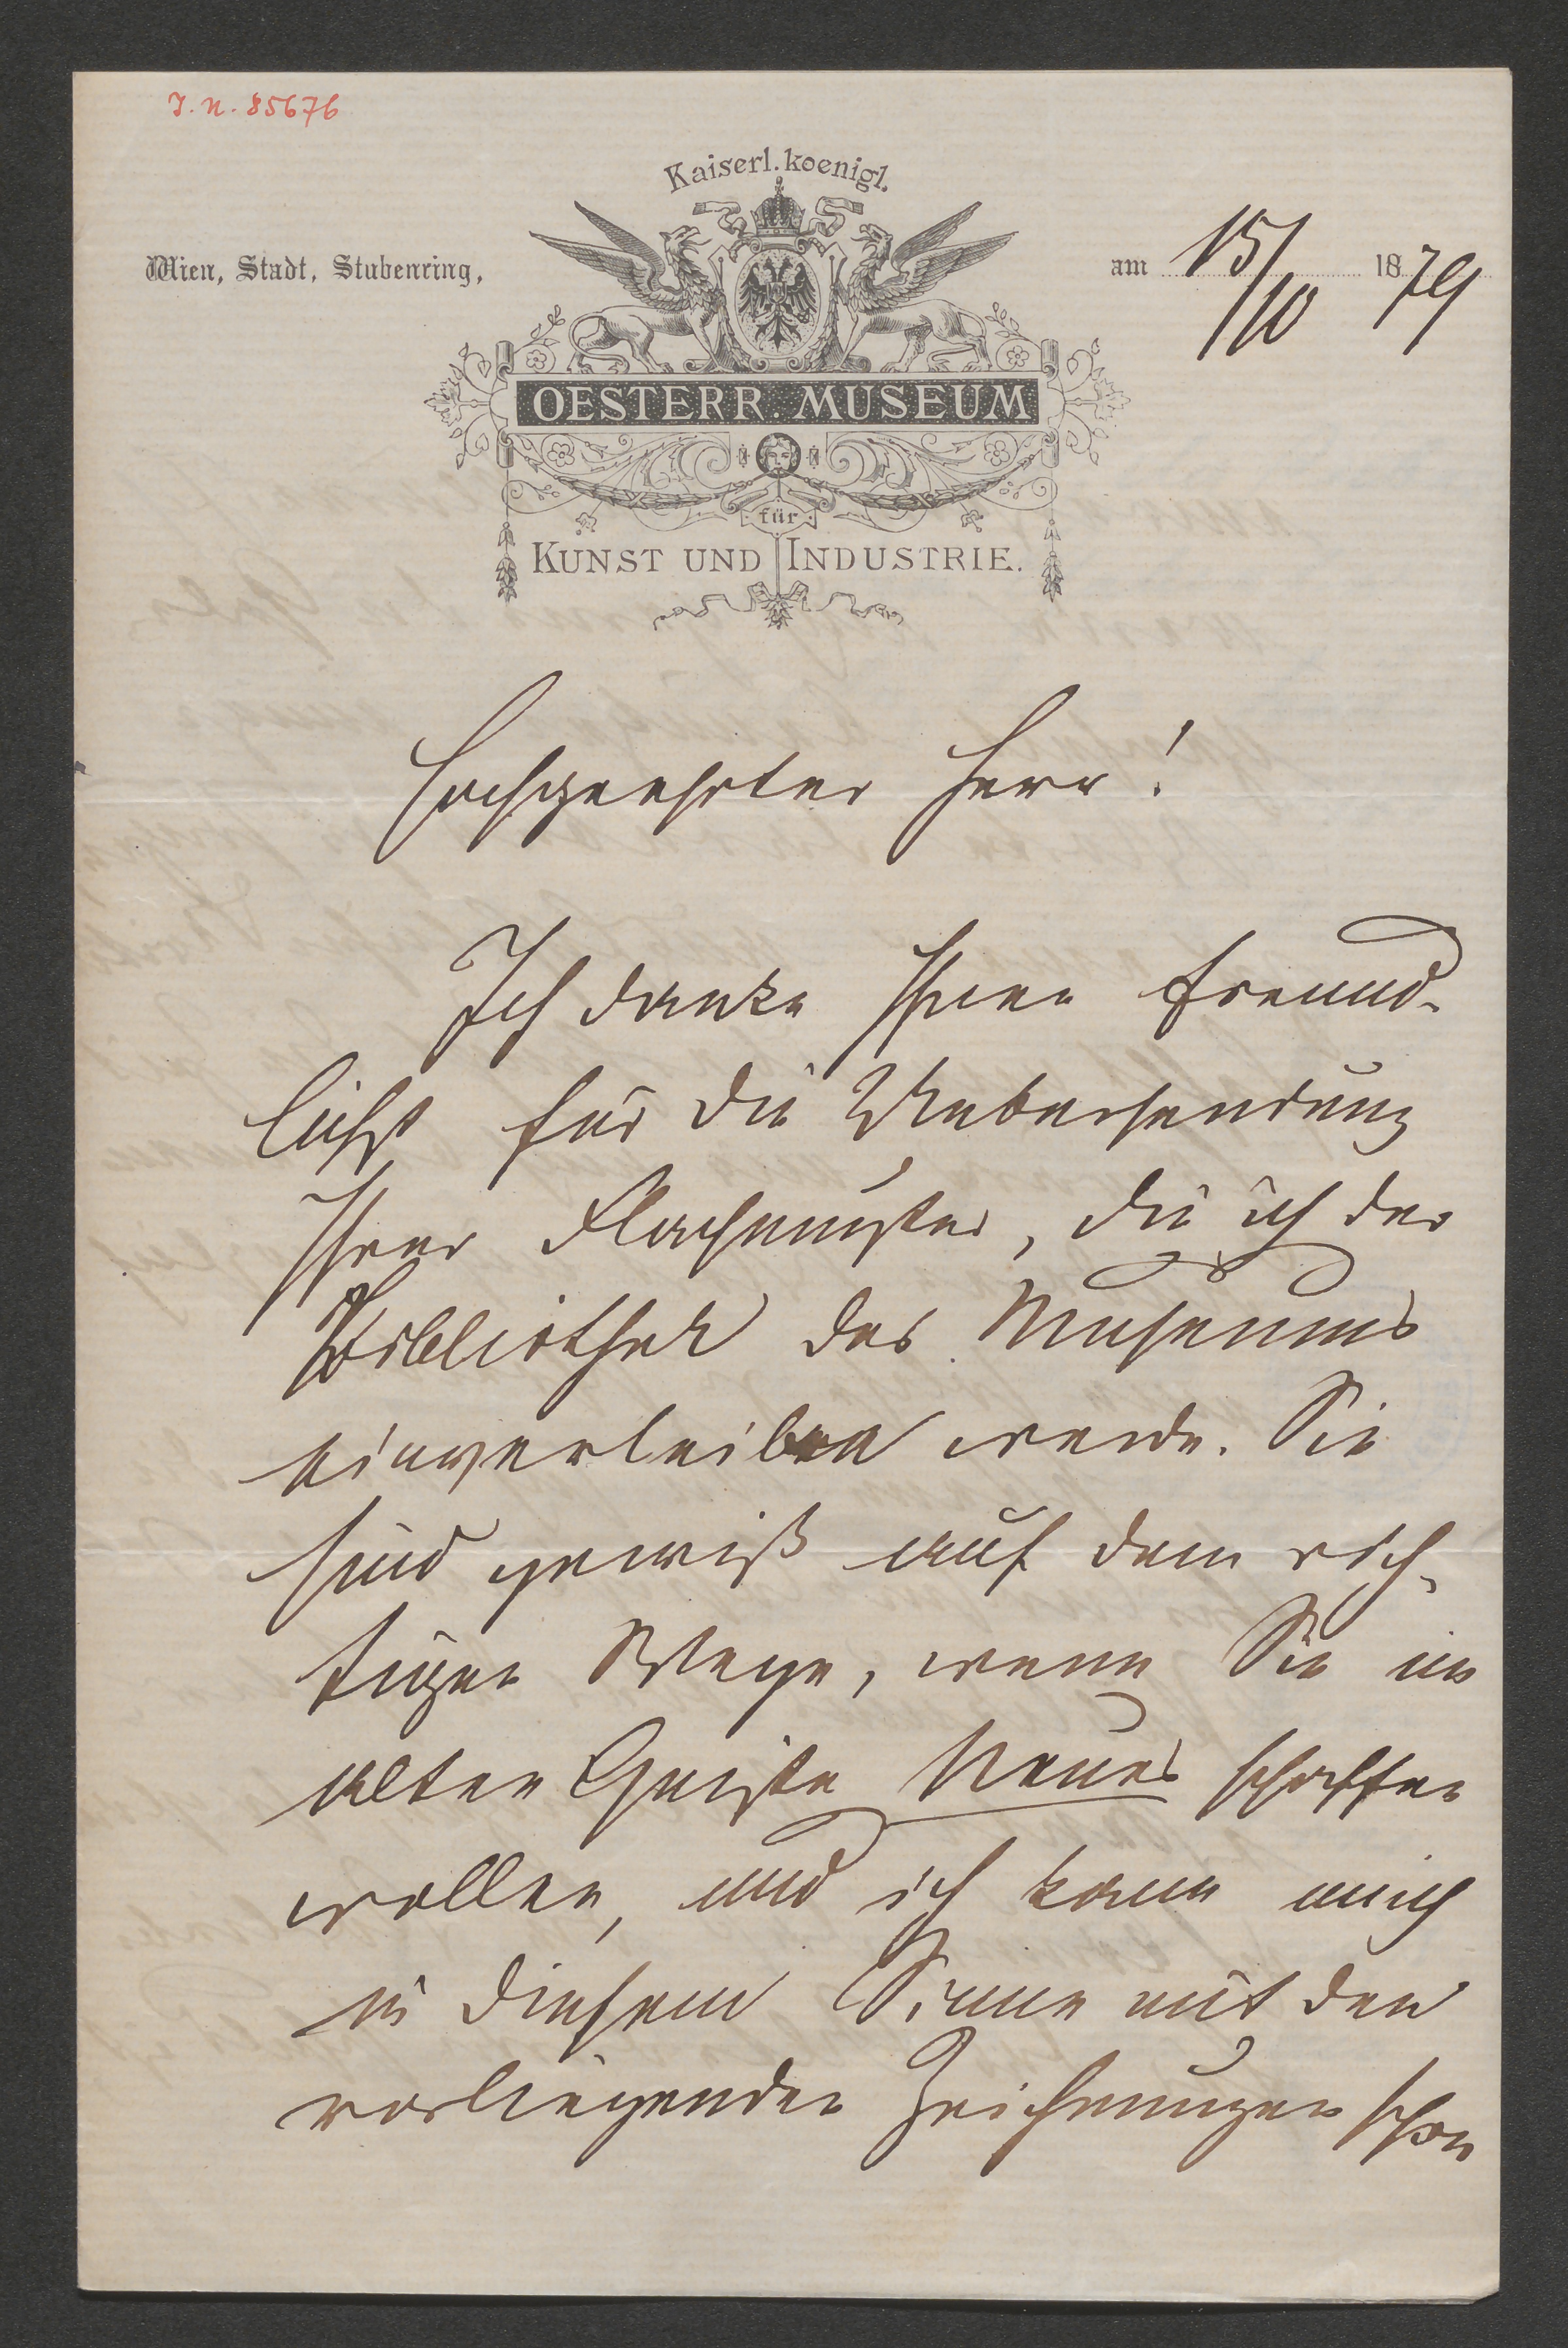 I. N. 85676
Kaiserl. koenigl.
Wien, Stadt, Stubenring,
am 15/10 1879
OESTERR. MUSEUM
für
KUNST UND INDUSTRIE.
Hochgeehrter Herr!
Ich danke Ihnen freund-
lichst für die Uebersendung
Ihrer Flachmuster, die ich der
Bibliothek des Museums
einverleiben werde. Sie
sind gewiß auf dem rich-
tigen Wege, wenn Sie im
alten Geiste Neues schaffen
wollen, und ich kann mich
in diesem Sinne mit den
vorliegenden Zeichnungen schon